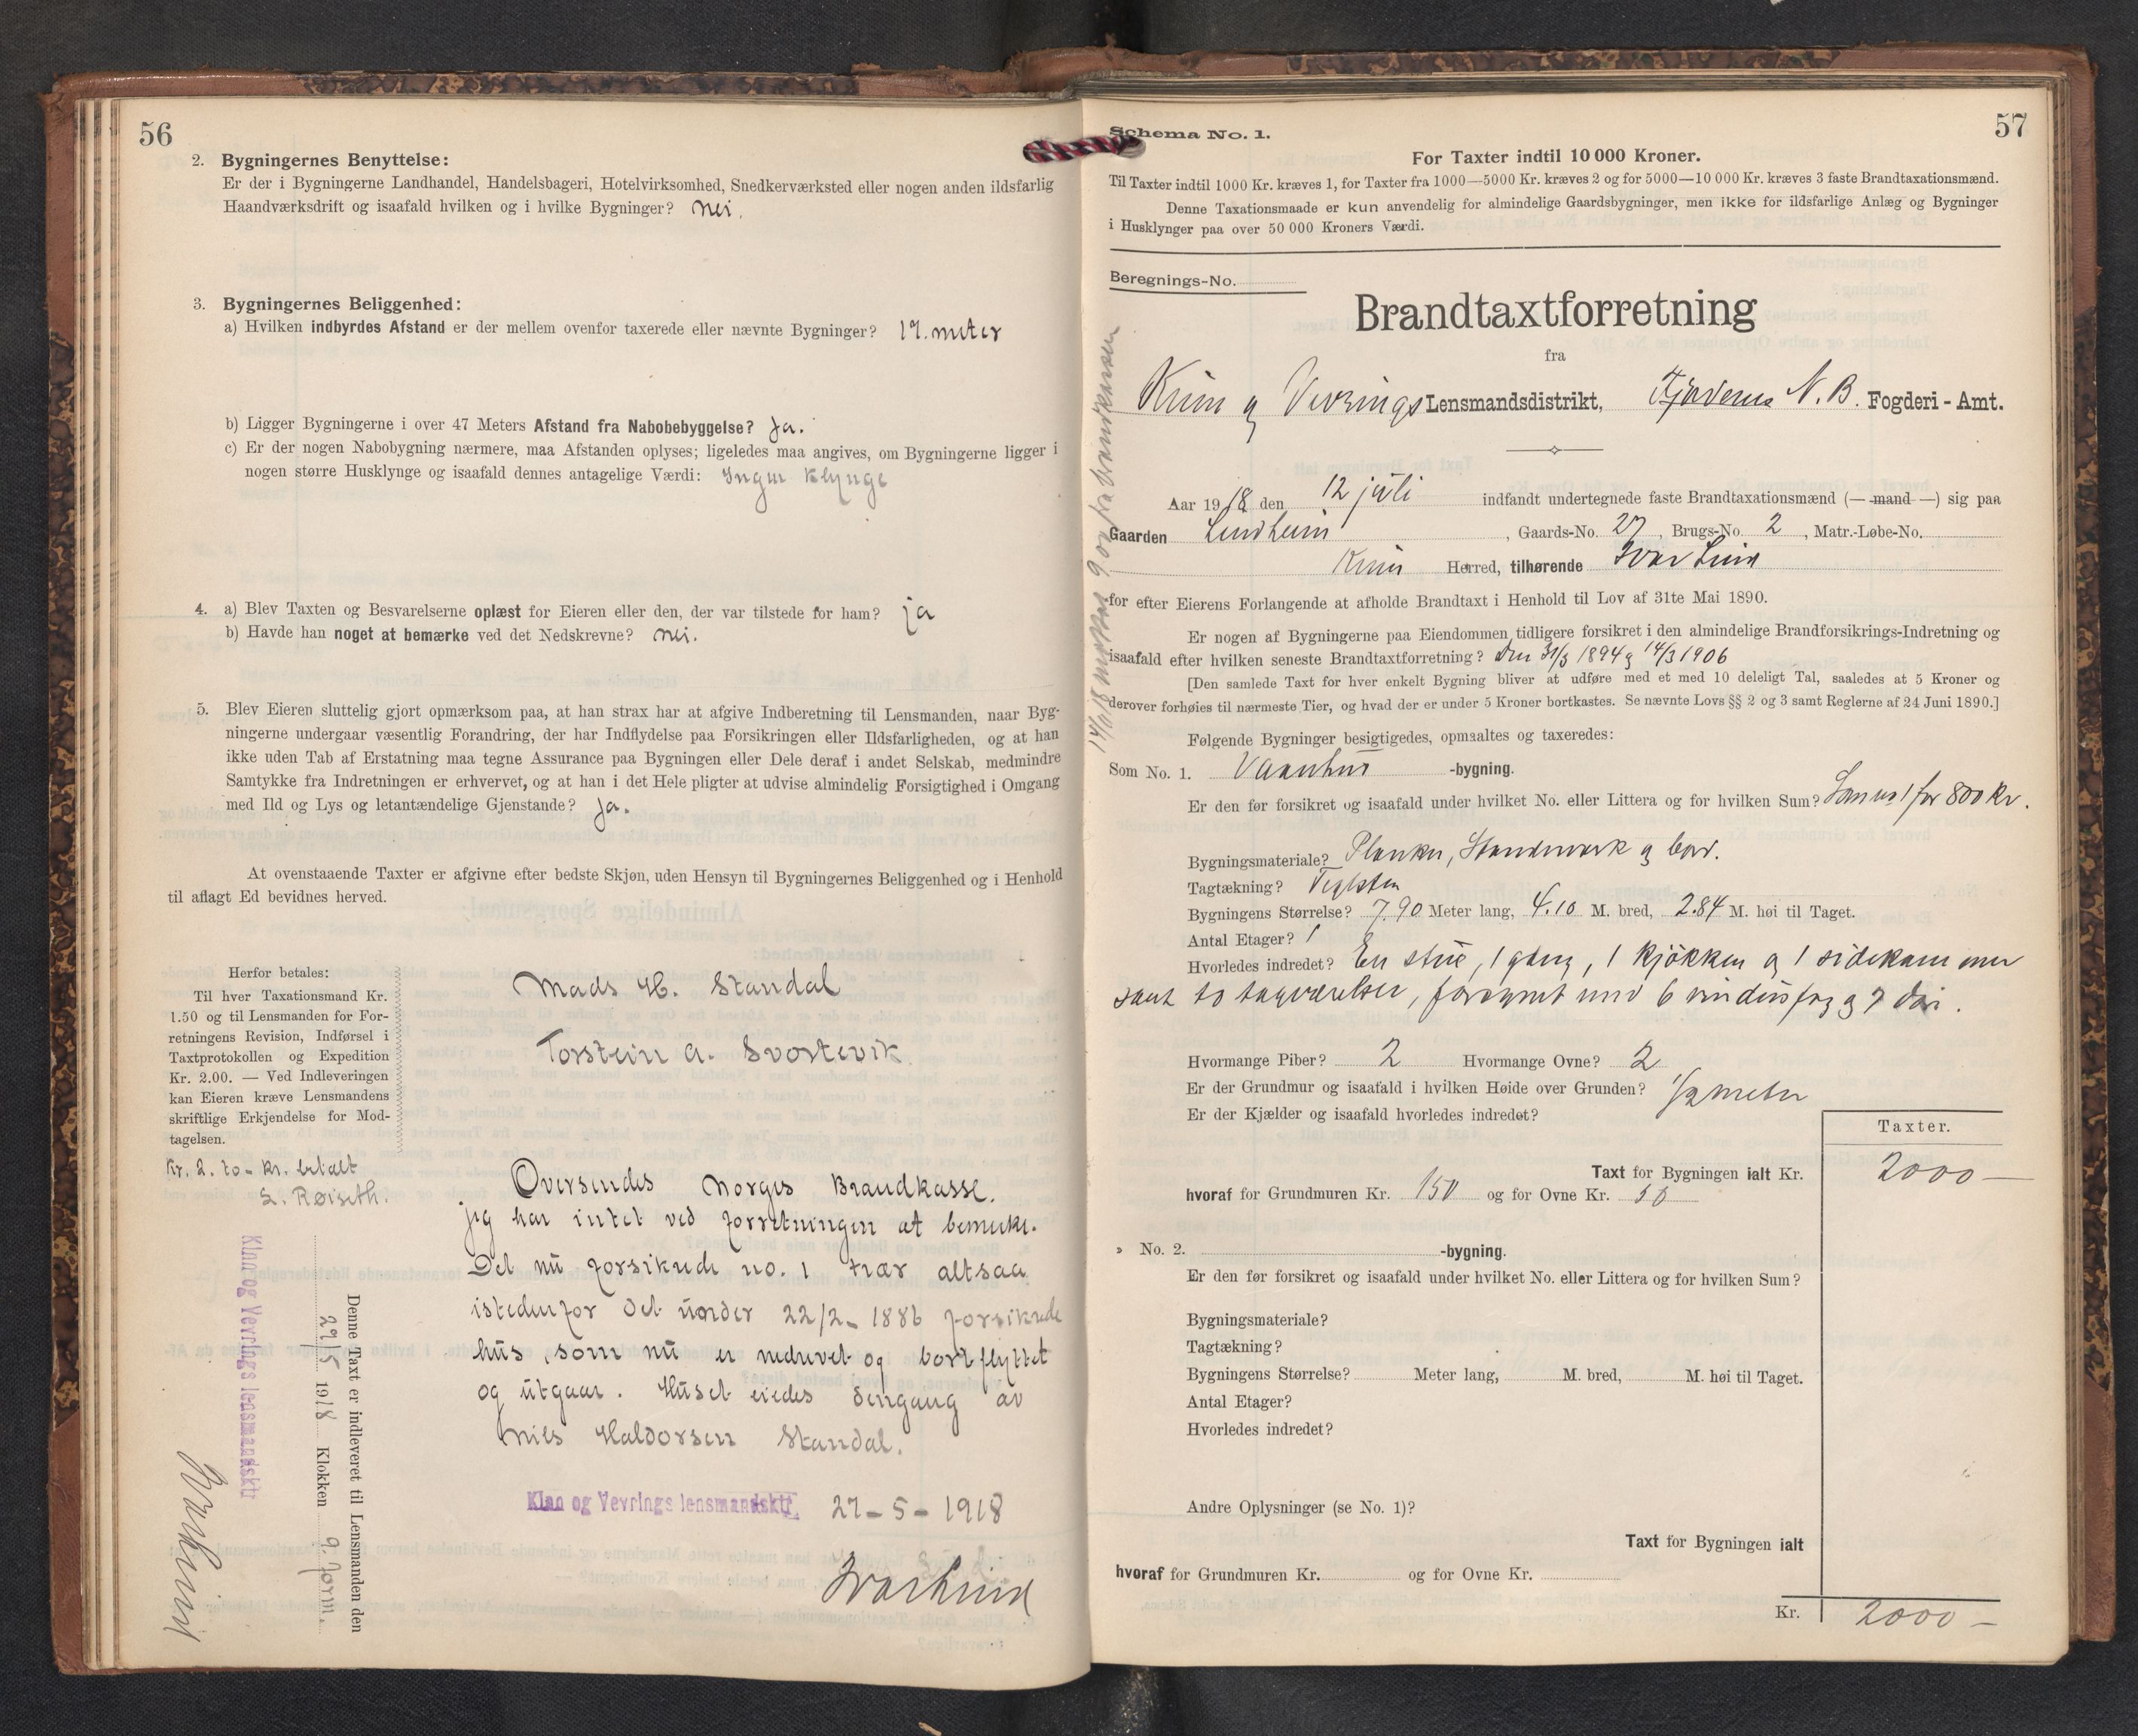 56
2. Bygningernes Benyttelse:
Er der i Bygningerne Landhandel, Handelsbageri, Hotelvirksomhed, Snedkerværksted eller nogen anden ildsfarlig
Haandværksdrift og isaafald hvilken og i hvilke Bygninger? Nei.
3. Bygningernes Beliggenhed:
a) Hvilken indbyrdes Afstand er der mellem ovenfor taxerede eller nævnte Bygninger? 17. meter
b) Ligger Bygningerne i over 47 Meters Afstand fra Nabobebyggelse? Ja.
c) Er der nogen Nabobygning nærmere, maa Afstanden oplyses; ligeledes maa angives, om Bygningerne ligger i
nogen større Husklynge og isaafald dennes antagelige Værdi: Ingen klynge
4. a) Blev Taxten og Besvarelserne oplæst for Eieren eller den, der var tilstede for ham? ja
b) Havde han noget at bemærke ved det Nedskrevne? Nei.
5. Blev Eieren sluttelig gjort opmærksom paa, at han strax har at afgive Indberetning til Lensmanden, naar Byg-
ningerne undergaar væsentlig Forandring, der har Indflydelse paa Forsikringen eller Ildsfarligheden, og at han
ikke uden Tab af Erstatning maa tegne Assurance paa Bygningen eller Dele deraf i andet Selskab, medmindre
Samtykke fra Indretningen er erhvervet, og at han i det Hele pligter at udvise almindelig Forsigtighed i Omgang
med Ild og Lys og letantændelige Gjenstande? Ja.
At ovenstaaende Taxter er afgivne efter bedste Skjøn, uden Hensyn til Bygningernes Beliggenhed og i Henhold
til aflagt Ed bevidnes herved.
Herfor betales:
Til hver Taxationsmand Kr.
1.50 og til Lensmanden for For-
retningens Revision, Indførsel i
Taxtprotokollen og Expedition
Kr. 2.00. — Ved Indleveringen
kan Eieren kræve Lensmandens
skriftlige Erkjendelse for Mod-
tagelsen.
Kr. 2. to - kr. betalt
L. Røiseth.
Mads H. Standal
Torstein A. Svortevik
Oversendes Norges Brandkasse.
jeg har intet ved forretningen at bemerke.
Det nu forsikrede no. 1 trær altsaa
istedenfor det under 22/2- 1886 forsikrede
hus, som nu er nedrevet og bortflyttet
og utgaar. Huset eiedes dengang av
Nils Haldorsen Standal.
Klnn og Vevrings lensmandsktr. 27-5-1918
Ivar Lind
Denne Taxt er indleveret til Lensmanden den
29/5 1918 Klokken 9. form.
Klnn og Vevrings lensmandsktr
Ivar Lind
57
Schema No. 1.
For Taxter indtil 10 000 Kroner.
Til Taxter indtil 1000 Kr. kræves 1, for Taxter fra 1000—5000 Kr. kræves 2 og for 5000—10 000 Kr. kræves 3 faste Brandtaxationsmænd.
Denne Taxationsmaade er kun anvendelig for almindelige Gaardsbygninger, men ikke for ildsfarlige Anlæg og Bygninger
i Husklynger paa over 50 000 Kroners Værdi.
Beregnings-No.
Brandtaxtforretning
fra
Kinn og Vevrings Lensmandsdistrikt, Fjordenes N. B. Fogderi - Amt.
Aar 1918 den 12 juli indfandt undertegnede faste Brandtaxationsmænd (— mand —) sig paa
Gaarden Lindheim, Gaards-No. 27, Brugs-No. 2, Matr.-Løbe-No.
Kinn Herred, tilhørende Ivar Lind
for efter Eierens Forlangende at afholde Brandtaxt i Henhold til Lov af 31te Mai 1890.
Er nogen af Bygningerne paa Eiendommen tidligere forsikret i den almindelige Brandforsikrings-Indretning og
isaafald efter hvilken seneste Brandtaxtforretning? Den 31/3 1894 og 14/3 1906
[Den samlede Taxt for hver enkelt Bygning bliver at udføre med et med 10 deleligt Tal, saaledes at 5 Kroner og
derover forhøies til nærmeste Tier, og hvad der er under 5 Kroner bortkastes. Se nævnte Lovs §§ 2 og 3 samt Reglerne af 24 Juni 1890.]
Følgende Bygninger besigtigedes, opmaaltes og taxeredes:
Som No. 1. Vaanhus -bygning.
Er den før forsikret og isaafald under hvilket No. eller Littera og for hvilken Sum? Som no 1 for 800 kr.
Bygningsmateriale? Planker, Standverk og bord.
Tagtækning? Teglsten
Bygningens Størrelse? 7.90 Meter lang, 4.10 M. bred, 2.84 M. høi til Taget.
Antal Etager? 1
Hvorledes indredet? En stue, 1 gang, 1 kjøkken og 1 sidekammer
samt to tagværelser, forsynet med 6 vindusfag og 7 dør.
Hvormange Piber? 2 Hvormange Ovne? 2
Er der Grundmur og isaafald i hvilken Høide over Grunden? 1/2 meter
Er der Kjælder og isaafald hvorledes indredet?
Taxter.
Taxt for Bygningen ialt Kr. 2000 —
hvoraf for Grundmuren Kr. 150 og for Ovne Kr. 50
» No. 2. -bygning.
Er den før forsikret og isaafald under hvilket No. eller Littera og for hvilken Sum?
Bygningsmateriale?
Tagtækning?
Bygningens Størrelse? Meter lang, M. bred, M. høi til Taget.
Antal Etager?
Hvorledes indredet?
Andre Oplysninger (se No. 1)?
Taxt for Bygningen ialt
hvoraf for Grundmuren Kr. og for Ovne Kr.
Kr. 2000 —